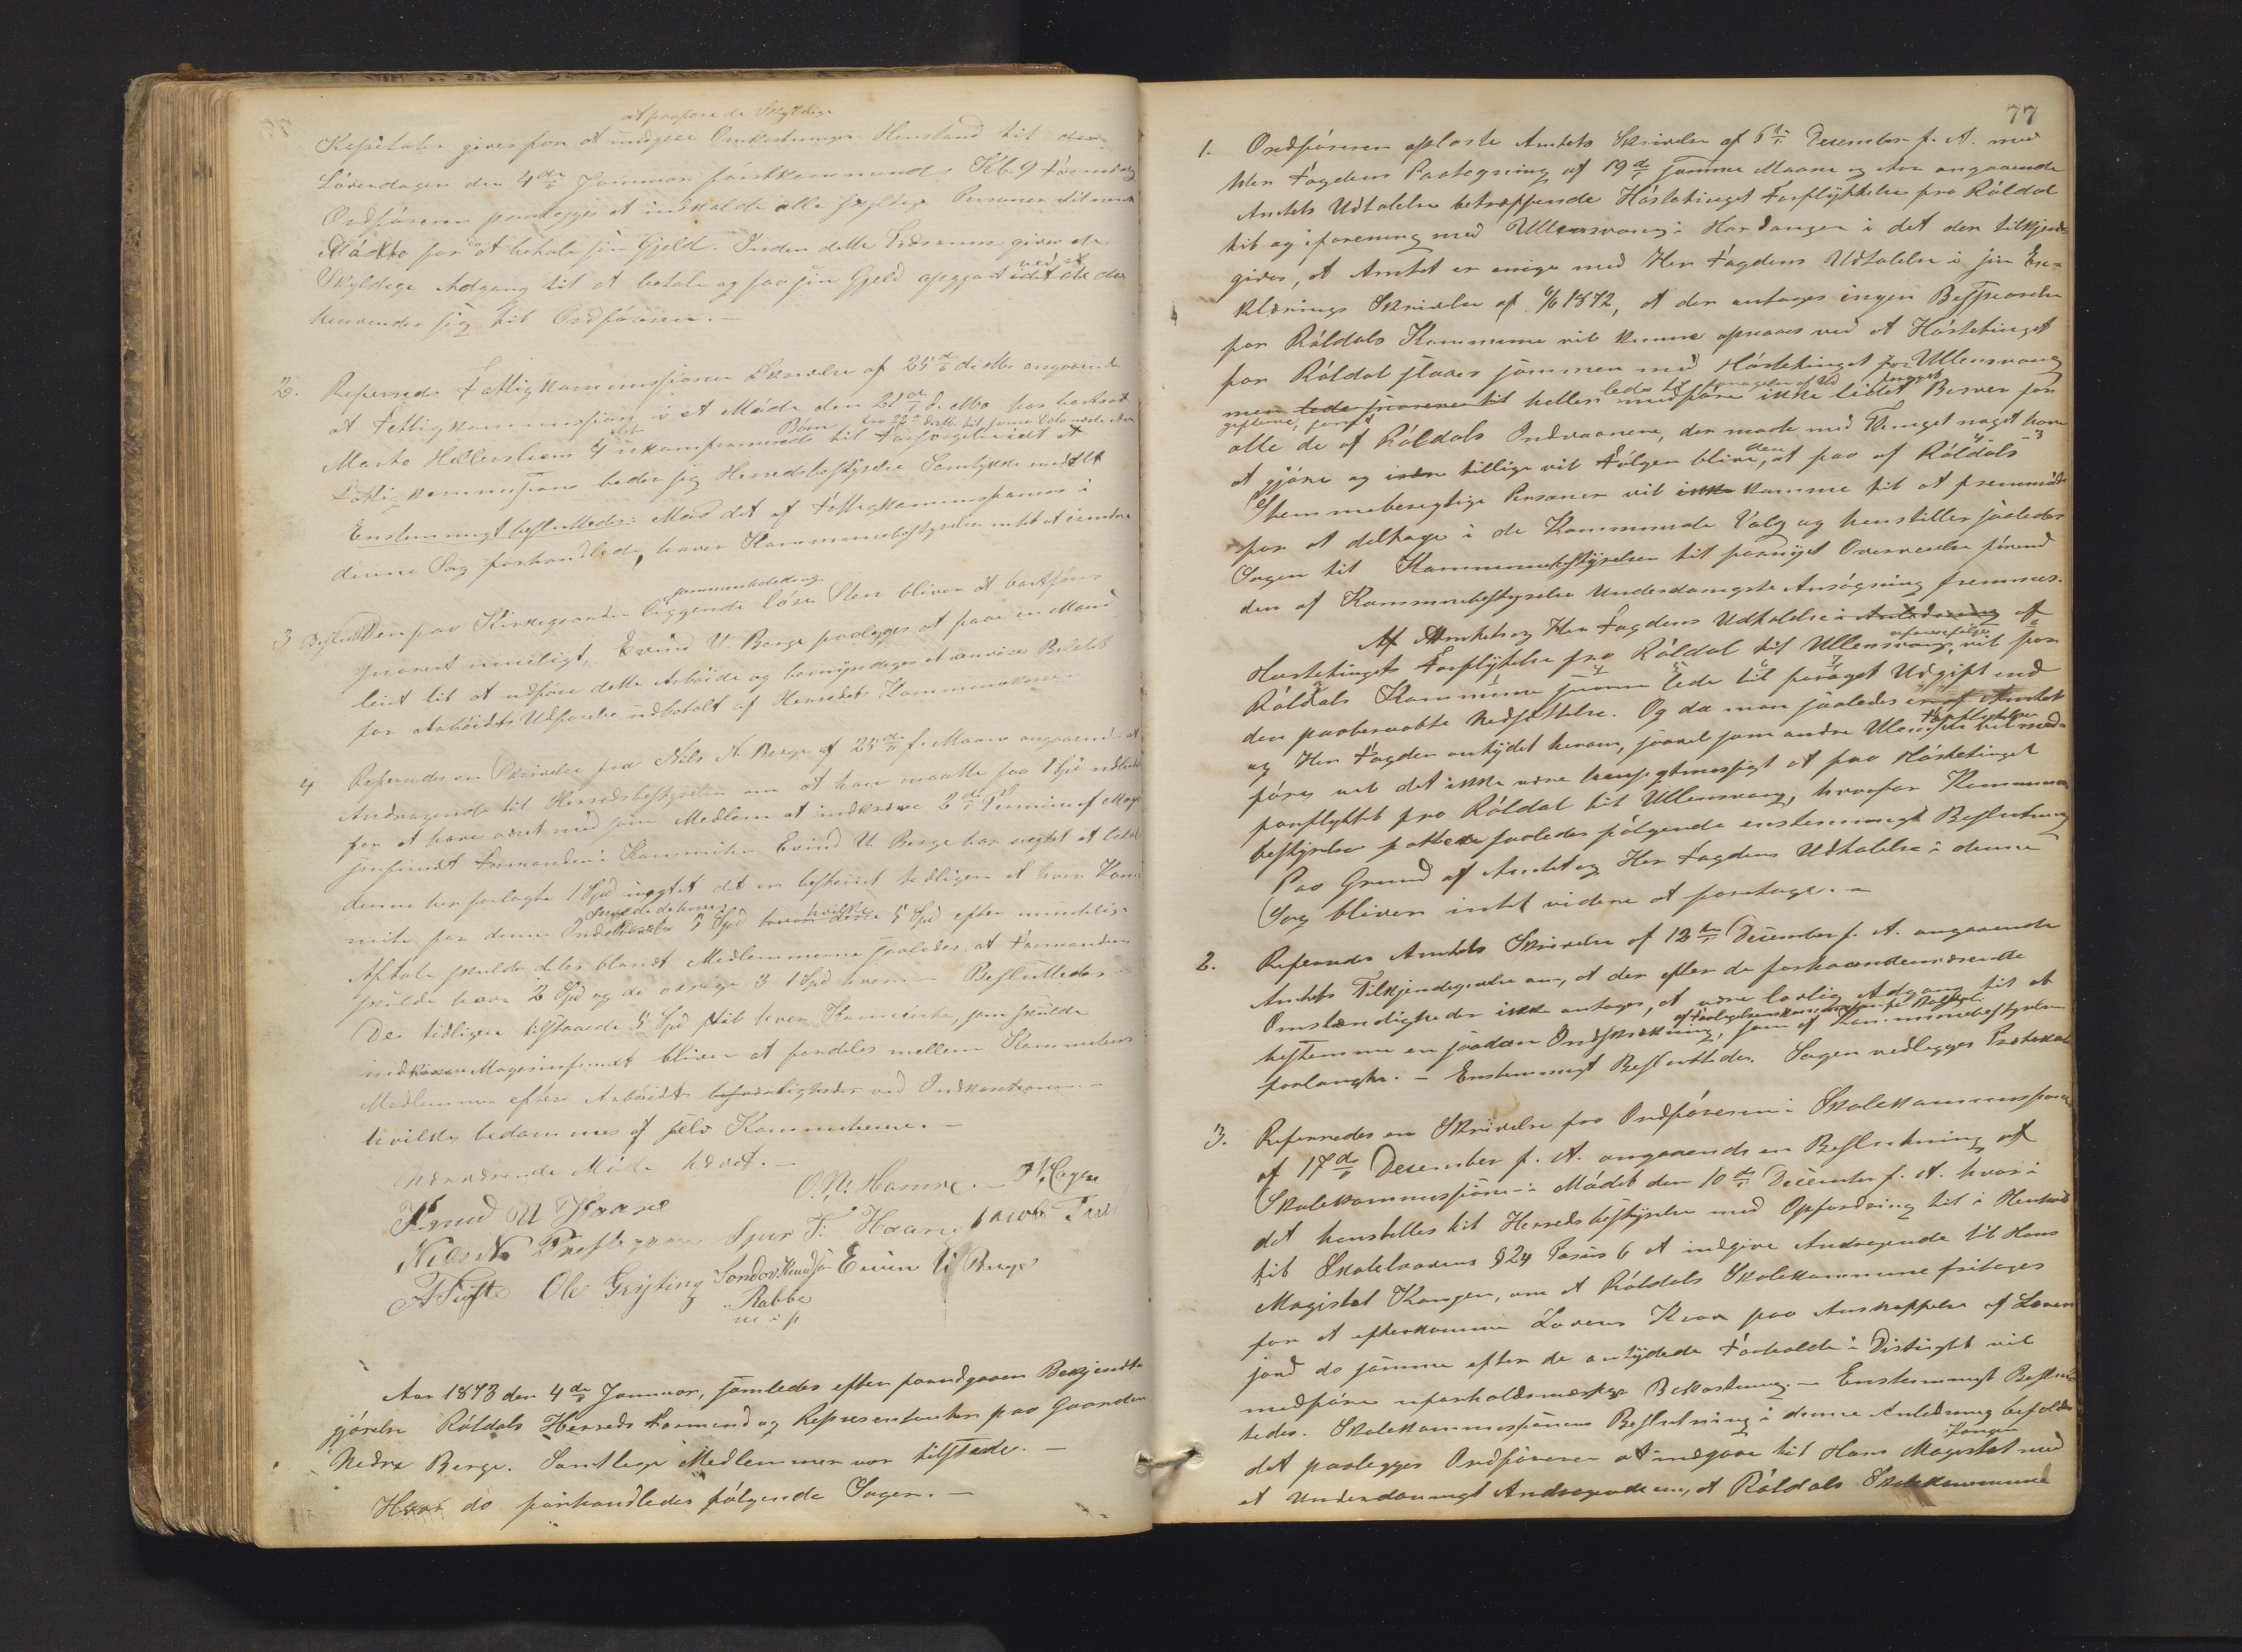 at paaføre de Skyldige
Kapitalen gives for at undgaae Omkostninger Henstand til den
Løverdagen den 4de Januar førstkommende Kl. 9 Formiddag
Ordføreren paalægges at indkalde alle skyldige Personer til nævnte
Møde for at betale sin Gjeld. Inden dette Tidsrum gives de
Skyldige Adgang til at betale og faa sin Gjeld opgjort ved at de
henvender sig til Ordføreren.
2. Refereredes Fattigkommissionens Skrivelse af 25de ds angaaende
at Fattigkommissionen i et Møde den 21de d. Md. har bortsat
Marta Hellerslien 4 ukonfirmerede Børn til Forsørgelse idet at
Fattigkommissionen beder sig Herredsbestyrelsens Samtykke meddelt
Enstemmigt besluttedes: Mod det af Fattigkommissionen i
denne Sag forhandlede, haver Kommunebestyrelsen intet at erindre
3 Besluttet Den paa Kirkegaarden sammenholdende liggende løse Sten bliver at bortføres
snarest mueligt, Eivind U. Berge paalægges at faae en Mand
leiet til at udføre dette Arbeide og bemyndiges at anvise Beløbet
for Arbeidets Udførelse udbetalt af Herredets Kommunekasse
4 Refereredes en Skrivelse fra Nils N. Berge af 25de f. Maane angaaende et
Andragende til Herredsbestyrelsen om at han maatte faa 1 Spd udbetalt
for at have været med som Medlem at indkræve 2den Termin af Maga-
sinfundet Formanden i Kommiteen Eivind U Berge har nægtet at betale
denne her forlagte 1 Spd uagtet det er bestemt tidligere at hver Kom-
mite for denne Indkrævelse skulde have 5 Spd hvilke 5 Spd efter mundtlig
Aftale skulde deles blandt Medlemmerne saaledes at Formanden
skulde have 2 Spd og de øvrige 3 1 Spd hver. Besluttedes
De tidligere tilstaaede 5 Spd til hver Kommite, som skulde
indkræve Magasinfundet bliver at fordeles mellem Kommiteens
Medlemmer efter Arbeidets besværligheder ved Indkasationen.
hvilke bedømmes af selve Kommiteerne.
Nærværende Møde hævet.
Knud U Haare O. N. Hamre. H. Hagen
Nils N Prestegaard Sjur T. Haare Jacob Juvet
Ole Grytting Sondov Knudsøn Eivin U Berge
Rabbe
m i p
Aar 1873 den 4de Januar, samledes efter forudgaaen Bekjendt-
gjørelse Røldals Herreds Formænd og Representanter paa Gaarden
Nedre Berge. Samtlige Medlemmer var tilstæde.
Hvor da forhandledes følgende Sager.
77
1. Ordføreren oplæste Amtets Skrivelse af 6te Desember f. A. med
Her Fogdens Paategning af 19de samme Maane og Aar angaaende
Amtets Udtalelse betræffende Høstetinget Forflyttelse fra Røldal
til og iforening med Ullensvang i Hardanger i det der tilkjende-
gives, at Amtet er enige med Her Fogdens Udtalelse i sin Er-
klærings Skrivelse af 6/6 1872, at der antages ingen Besparelse
for Røldals Kommune vil kunne opnaaes ved at Høstetinget
for Røldal slaaes sammen med Høstetinget for Ullensvang
men heller medføre ikke lidet Besvær for
alle de af Røldals Indvaanere, der maate med Thinget noget have
at gjøre og tillige vil Følgen blive den, at faa af Røldals
Stemmeberegtige Personer vil komme til at fremmøde
for at deltage i de Kommunale Valg og henstiller saaledes
Sagen til Kommunebestyrelsen til fornyet Overveielse førend
den af Kommunebestyrelsen Underdanigste Ansøgning fremmes.
Af Amtets og Her Fogdens Udtalelse
Høstetingets Forflytelse fra Røldal til Ullensvang, vil for
Røldals Kommune lede til forøget Udgift end
den paaberaabte Nedsættelse. Og da man saaledes af Amtet
og Her Fogden antydet herom, saavel som andre Ulemper Forflyttelsen vil med-
føre, vil det ikke være hensigtmessigt at faa Høstetinget
forflyttet fra Røldal til Ullensvang, hvorfor Kommune-
bestyrelsen fatter saaledes følgende enstemmigt Beslutning
Paa Grund af Amtet og Her Fogdens Udtalelse i denne
Sag bliver intet videre at foretage.
2. Refereredes Amtets Skrivelse af 12te Desember f. A. angaaende
Amtets Tilkjendegivelse om, at der efter de forhaandenværende
Omstændigheder ikke antages, at være lovlig Adgang til at
bestemme en saadan Indskrækning, som af Kommunebestyrelsen
forlangte. Enstemmigt Besluttedes. Sagen vedlegges Protokollen
3. Refereredes en Skrivelse fra Ordføreren i Skolekommissionen
af 17de Desember f. A. angaaende en Beslutning af
Skolekommissionen i Mødet den 10de Desember f. A. hvor i
det henstilles til Herredsbestyrelsen med Opfordring til i Henhold
til Skolelovens § 24 Pasus 6 at indgive Andragende til Hans
Magistæt Kongen, om at Røldals Skolekommune fritages
for at efterkomme Lovens Krav paa Anskaffelse af Lærer-
jord da samme efter de antydede Forholde i Distrigtt vil
medføre uforholdsmæssige Bekostning. Enstemmigt Beslut-
tedes. Skolekommissionens Beslutning i denne Anledning befoldes
det paalegges Ordføreren at indgaae til Hans Magistæt Kongen med
et Underdannigt Andragende om, at Røldals Skolekommune